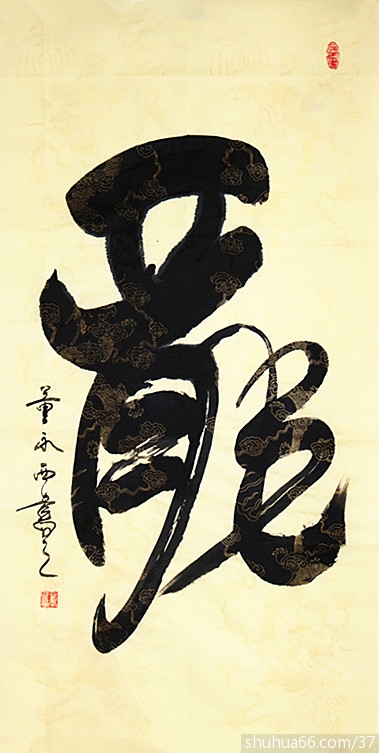 龍
董永西之
shuhua66.com/37